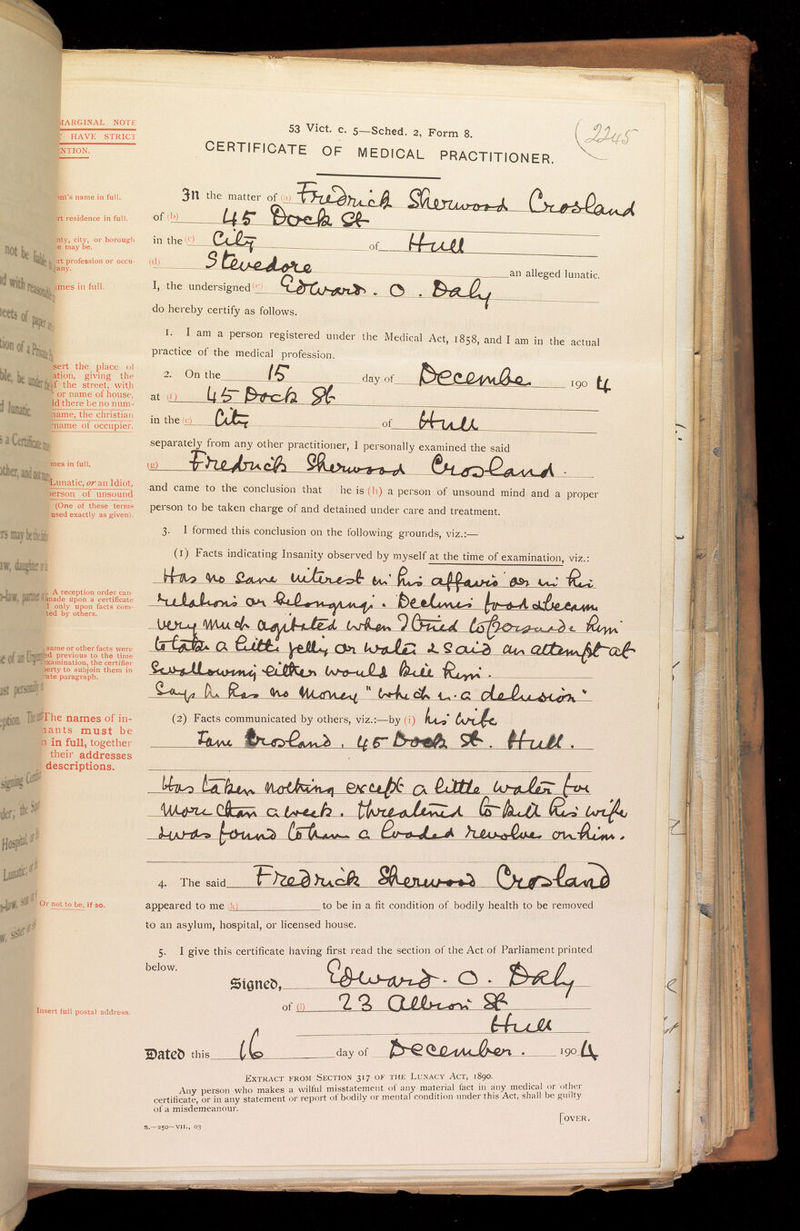 MARGINAL NOTE
HAVE STRICT
NTION.
53 Vict. c. 5—Sched. 2, Form 8.
2245
CERTIFICATE OF MEDICAL PRACTITIONER.
ent's name in full.
In the matter of (a) Fredrick Sherwood Crosland
rt residence in full.
of (b) 45 Dock St
nty, city, or borough
e may be.
in the (c) City of Hull
rt profession or occu-
any.
(d) Stevedore an alleged lunatic.
mes in full.
I, the undersigned (e) Edward . O . Daly
do hereby certify as follows.
1. I am a person registered under the Medical Act, 1858, and I am in the actual
practice of the medical profession.
sert the place of
ation, giving the
f the street, with
or name of house,
ld there be no num-
name, the christian
name of occupier.
2. On the 15 day of December 190 4
at (f) 45 Dock St
in the (c) City of Hull
separately from any other practitioner, I personally examined the said
mes in full.
(g) Fredrick Sherwood Crosland .
Lunatic, or an Idiot,
person of unsound
(One of these terms
used exactly as given).
and came to the conclusion that he is (h) a person of unsound mind and a proper
person to be taken charge of and detained under care and treatment.
3. I formed this conclusion on the following grounds, viz.:—
(1) Facts indicating Insanity observed by myself at the time of examination, viz.:
A reception order can-
made upon a certificate
l only upon facts com-
ted by others.
Has no sane interest in his affairs or in his
relations or belongings . Declines food & became
very much agitated when I tried to persuade him
to take a little jelly or water & said an attempt at
same or other facts were
ed previous to the time
examination, the certifier
erty to subjoin them in
ate paragraph.
Swallowing either would kill him .
Says he has no money "which is a delusion"
The names of in-
ants must be
n in full, together
their addresses
descriptions.
(2) Facts communicated by others, viz.:—by (i) his wife
Jane Crosland , 45 Dock St . Hull .
Has taken nothing except a little water for
more than a week . threatened to kill his wife
& was found to have a loaded revolver on him .
4. The said Fredrick Sherwood Crosland
Or not to be, if so.
appeared to me (k) to be in a fit condition of bodily health to be removed
to an asylum, hospital, or licensed house.
5. I give this certificate having first read the section of the Act of Parliament printed
below.
Signed, Edward . O . Daly
Insert full postal address.
of (l) 23 Albion St
Hull
Dated this 16 day of December . 190 4
EXTRACT FROM SECTION 317 OF THE LUNACY ACT, 1890.
Any person who makes a wilful misstatement of any material fact in any medical or other
certificate, or in any statement or report of bodily or mental condition under this Act, shall be guilty
of a misdemeanour.
[OVER.
S.—250—VII., 03